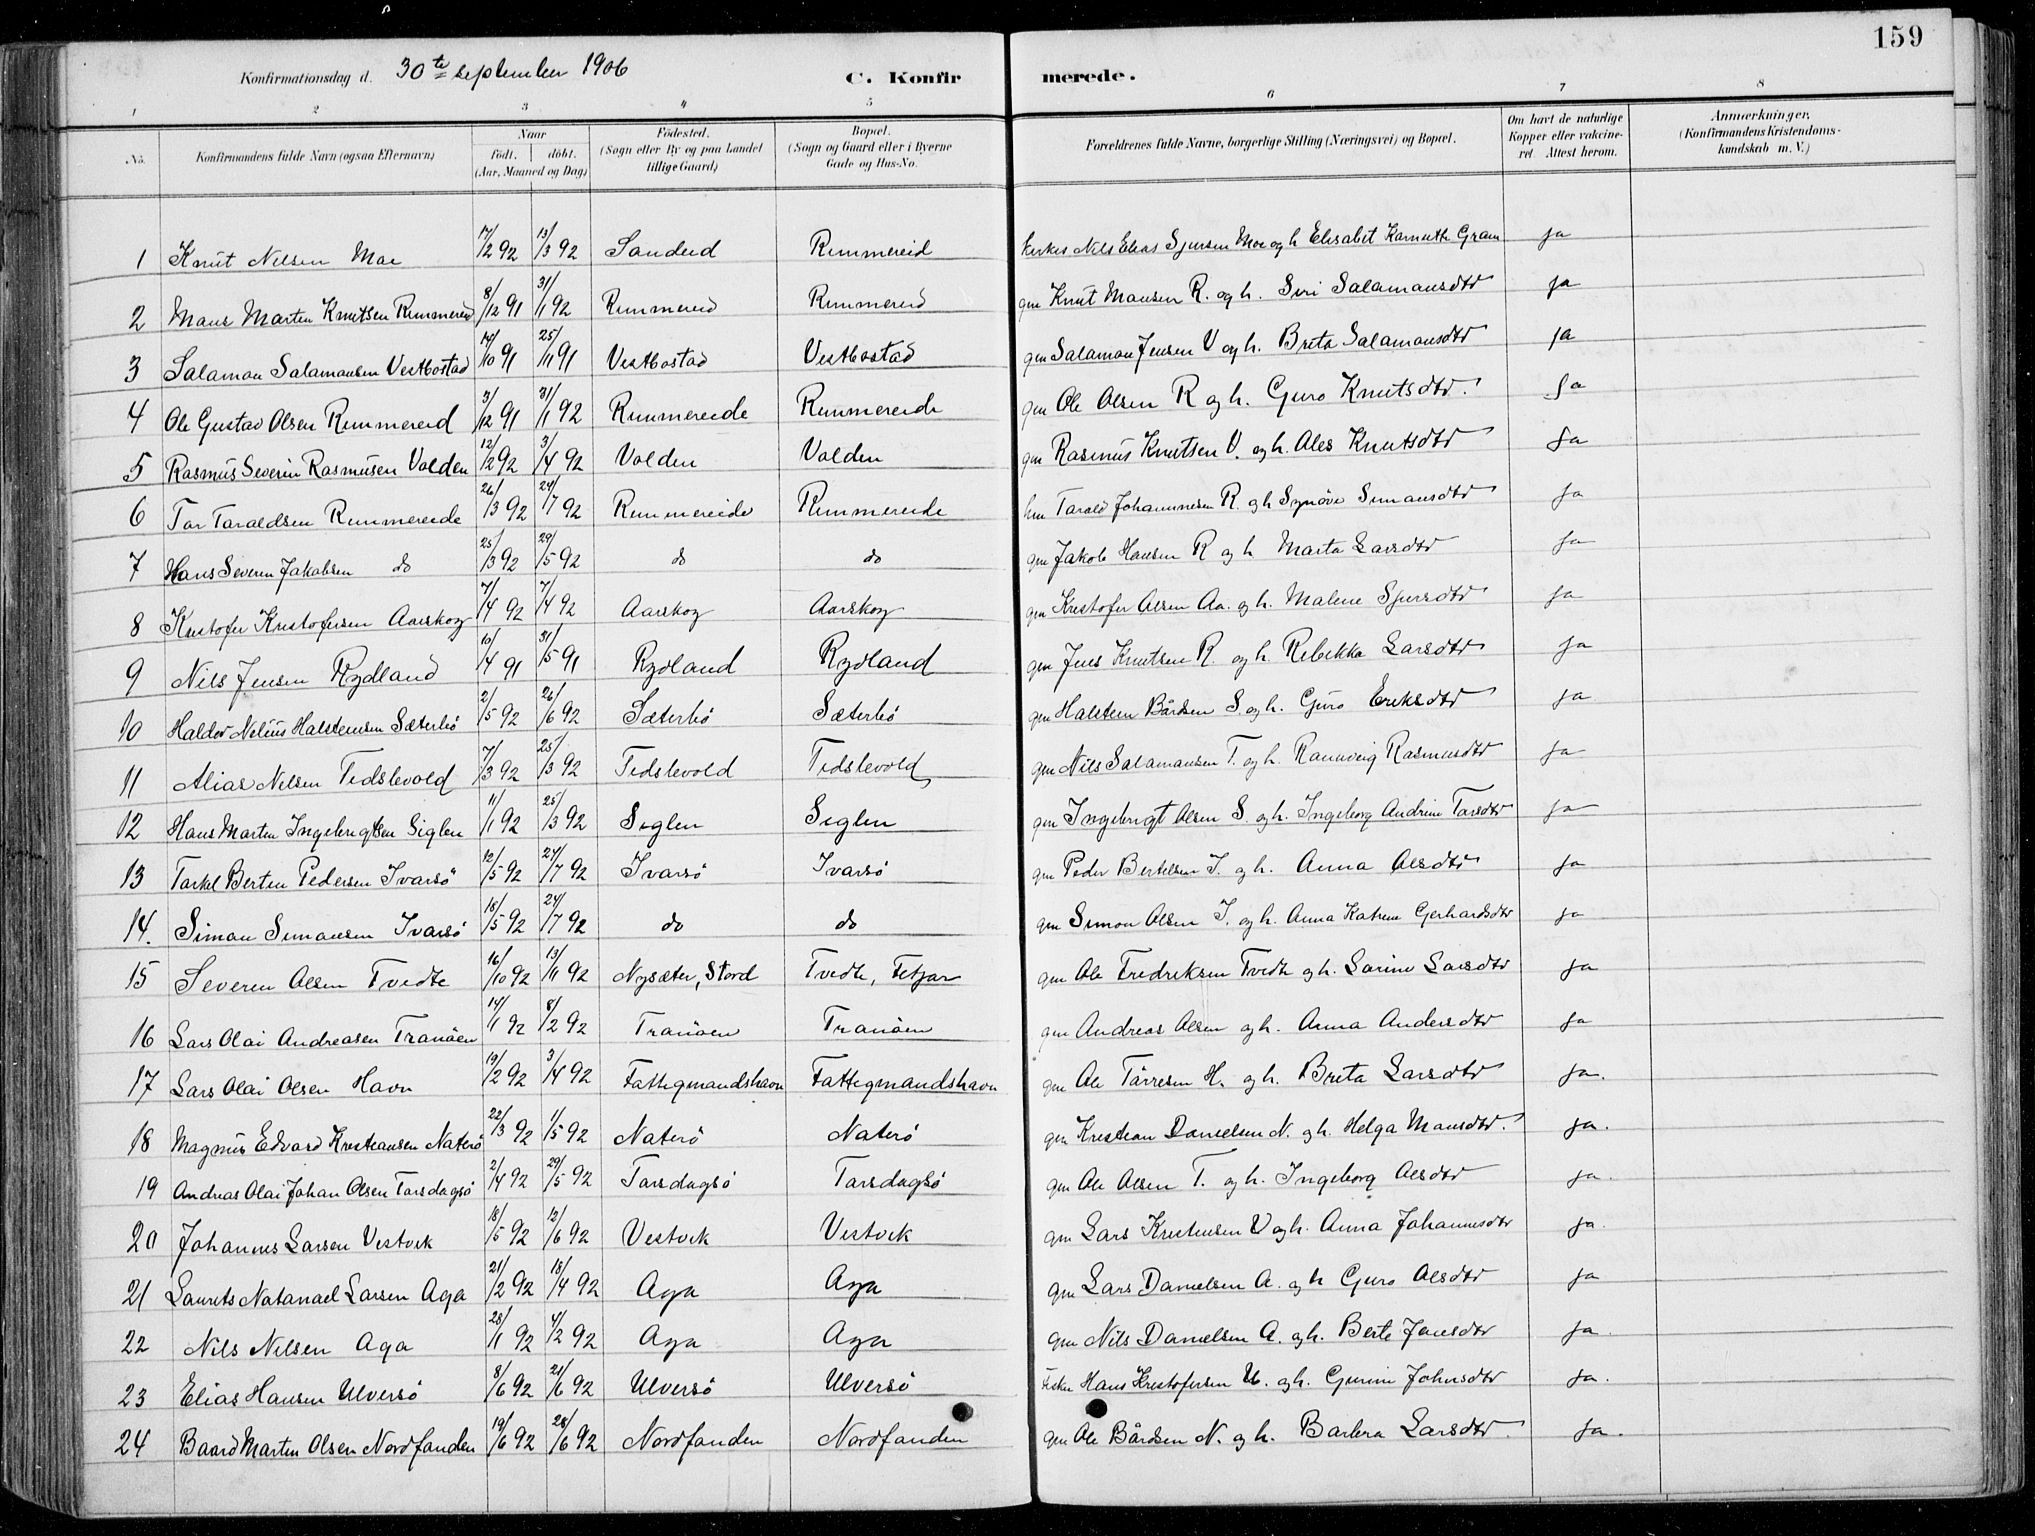 159
Konfirmationsdag d. 30te september 1906 C. Konfirmerede.
1 2 3 4 5 6 7 8
No. Konfirmandens fulde Navn (ogsaa Efternavn) Naar født. døbt. (Aar, Maaned og Dag) Fødested. (Sogn eller By og paa Landet tillige Gaard) Bopæl. (Sogn og Gaard eller i Byerne Gade og Hus-No. Forældrenes fulde Navne, borgerlige Stilling (Næringsvei) og Bopæl. Om havt de naturlige Kopper eller vakcineret Attest herom. Anmærkninger, (Konfirmandens Kristendomskundskab m. V.)
1 Knut Nilsen Moe 17/2 92 13/3 92 Sandeid Rimmereid Nils Elias Sjursen Moe og h. Elisabet Gram ja
2 Mans Marten Knutsen Rimmereid 8/12 91 31/1 92 Rimmereid Rimmereid gm Knut Mansen R. og h. Siri Salamansdtr ja
3 Salamon Salamonsen Vestbostad 14/10 91 25/11 91 Vestbostad Vestbostad gm Salamon Jensen V og h. Breta Salamonsdtr ja
4 Ole Gustav Olsen Rimmereid 3/12 91 31/1 92 Rimmereide Rimmereide gm Ole Olsen R og h. Guro Knutsdtr. ja
5 Rasmus Severin Rasmusen Volden 12/2 92 3/4 92 Volden Volden gm Rasmus Knutsen V. og h. Ales Knutsdtr ja
6 Tor Taraldsen Rimmereide 26/3 92 24/7 92 Rimmereide Rimmereide Tarald Johannesen R. og h Synøve Simonsdtr ja
7 Hans Severin Jakobsen do 25/3 92 29/5 92 do do gm Jakob Hansen R og h Marta Larsdtr ja
8 Kristofer Kristofersen Aarskog 7/4 92 7/4 92 Aarskog Aarskog gm Kristofer Olsen Aa. og h. Malene Sjursdtr ja
9 Nils Jensen Rydland 10/4 91 31/5 91 Rydland Rydland gm Jens Knutsen R. og h. Rebekka Larsdtr ja
10 Haldor Nelius Halsteinsen Sæterbø 2/5 92 26/6 92 Sæterbø Sæterbø gm Halstein Bårdsen S. og h. Guro Eriksdtr ja
11 Alias Nilsen Tidslevold 7/3 92 25/3 92 Tidslevold Tidslevold gm Nils Salamonsen T. og h. Rannveig Rasmusdtr ja
12 Hans Marten Ingebrigtsen Siglen 11/1 92 25/3 92 Siglen Siglen gm Ingebrigt Olsen S. og h. Ingeborg Andrine Torsdtr ja
13 Torkel Berten Pedersen Ivarsø 12/5 92 24/7 92 Ivarsø Ivarsø gm Peder Bertelsen I. og h. Anna Olsdtr ja
14. Simon Simonsen Ivarsø 18/5 92 24/7 92 do do gm Simon Olsen I. og h. Anna Katrine Gerhardsdtr ja
15 Severin Olsen Tvedte 16/10 92 13/11 92 Nysæter, Stord Tvedte, Fitjar gm Ole Fredriksen Tvedte og h. Larine Larsdtr ja
16 Lars Olai Andreasen Tranøen 14/1 92 8/2 92 Tranøen Tranøen gm Andreas Olsen og h. Anna Andersdtr ja
17 Lars Olai Olsen Havn 19/2 92 3/4 92 Fattigmandshavn Fattigmandshavn gm Ole Tørresen H. og h. Breta Larsdtr ja.
18 Magnus Edvard Kristiansen Naterø 22/3 92 1/5 92 Naterø Naterø gm Kristian Danielsen N. og h. Helga Monsdtr. ja.
19 Andreas Olai Johan Olsen Torsdagsø 2/4 92 29/5 92 Torsdagsø Torsdagsø gm Ole Olsen T. og h. Ingeborg Olsdtr ja.
20 Johannes Larsen Vestvik 18/5 92 12/6 92 Vestvik Vestvik gm Lars Kristensen V og h. Anna Johannesdtr ja.
21 Laurits Natanael Larsen Aga 21/2 92 18/4 92 Aga Aga gm Lars Danielsen A. og h Guro Olsdtr ja
22 Nils Nilsen Aga 28/1 92 4/2 92 Aga Aga gm Nils Danielsen A. og h. Berte Jonsdtr ja.
23 Elias Hansen Ulversø 8/6 92 21/6 92 Ulversø Ulversø fisker Hans Kristofersen U. og h. Gurine Johnsdtr ja.
24 Baard Marten Olsen Nordfonden 19/6 92 28/6 92 Nordfonden Nordfonden gm Ole Bårdsen N. og h. Barbra Larsdtr ja.